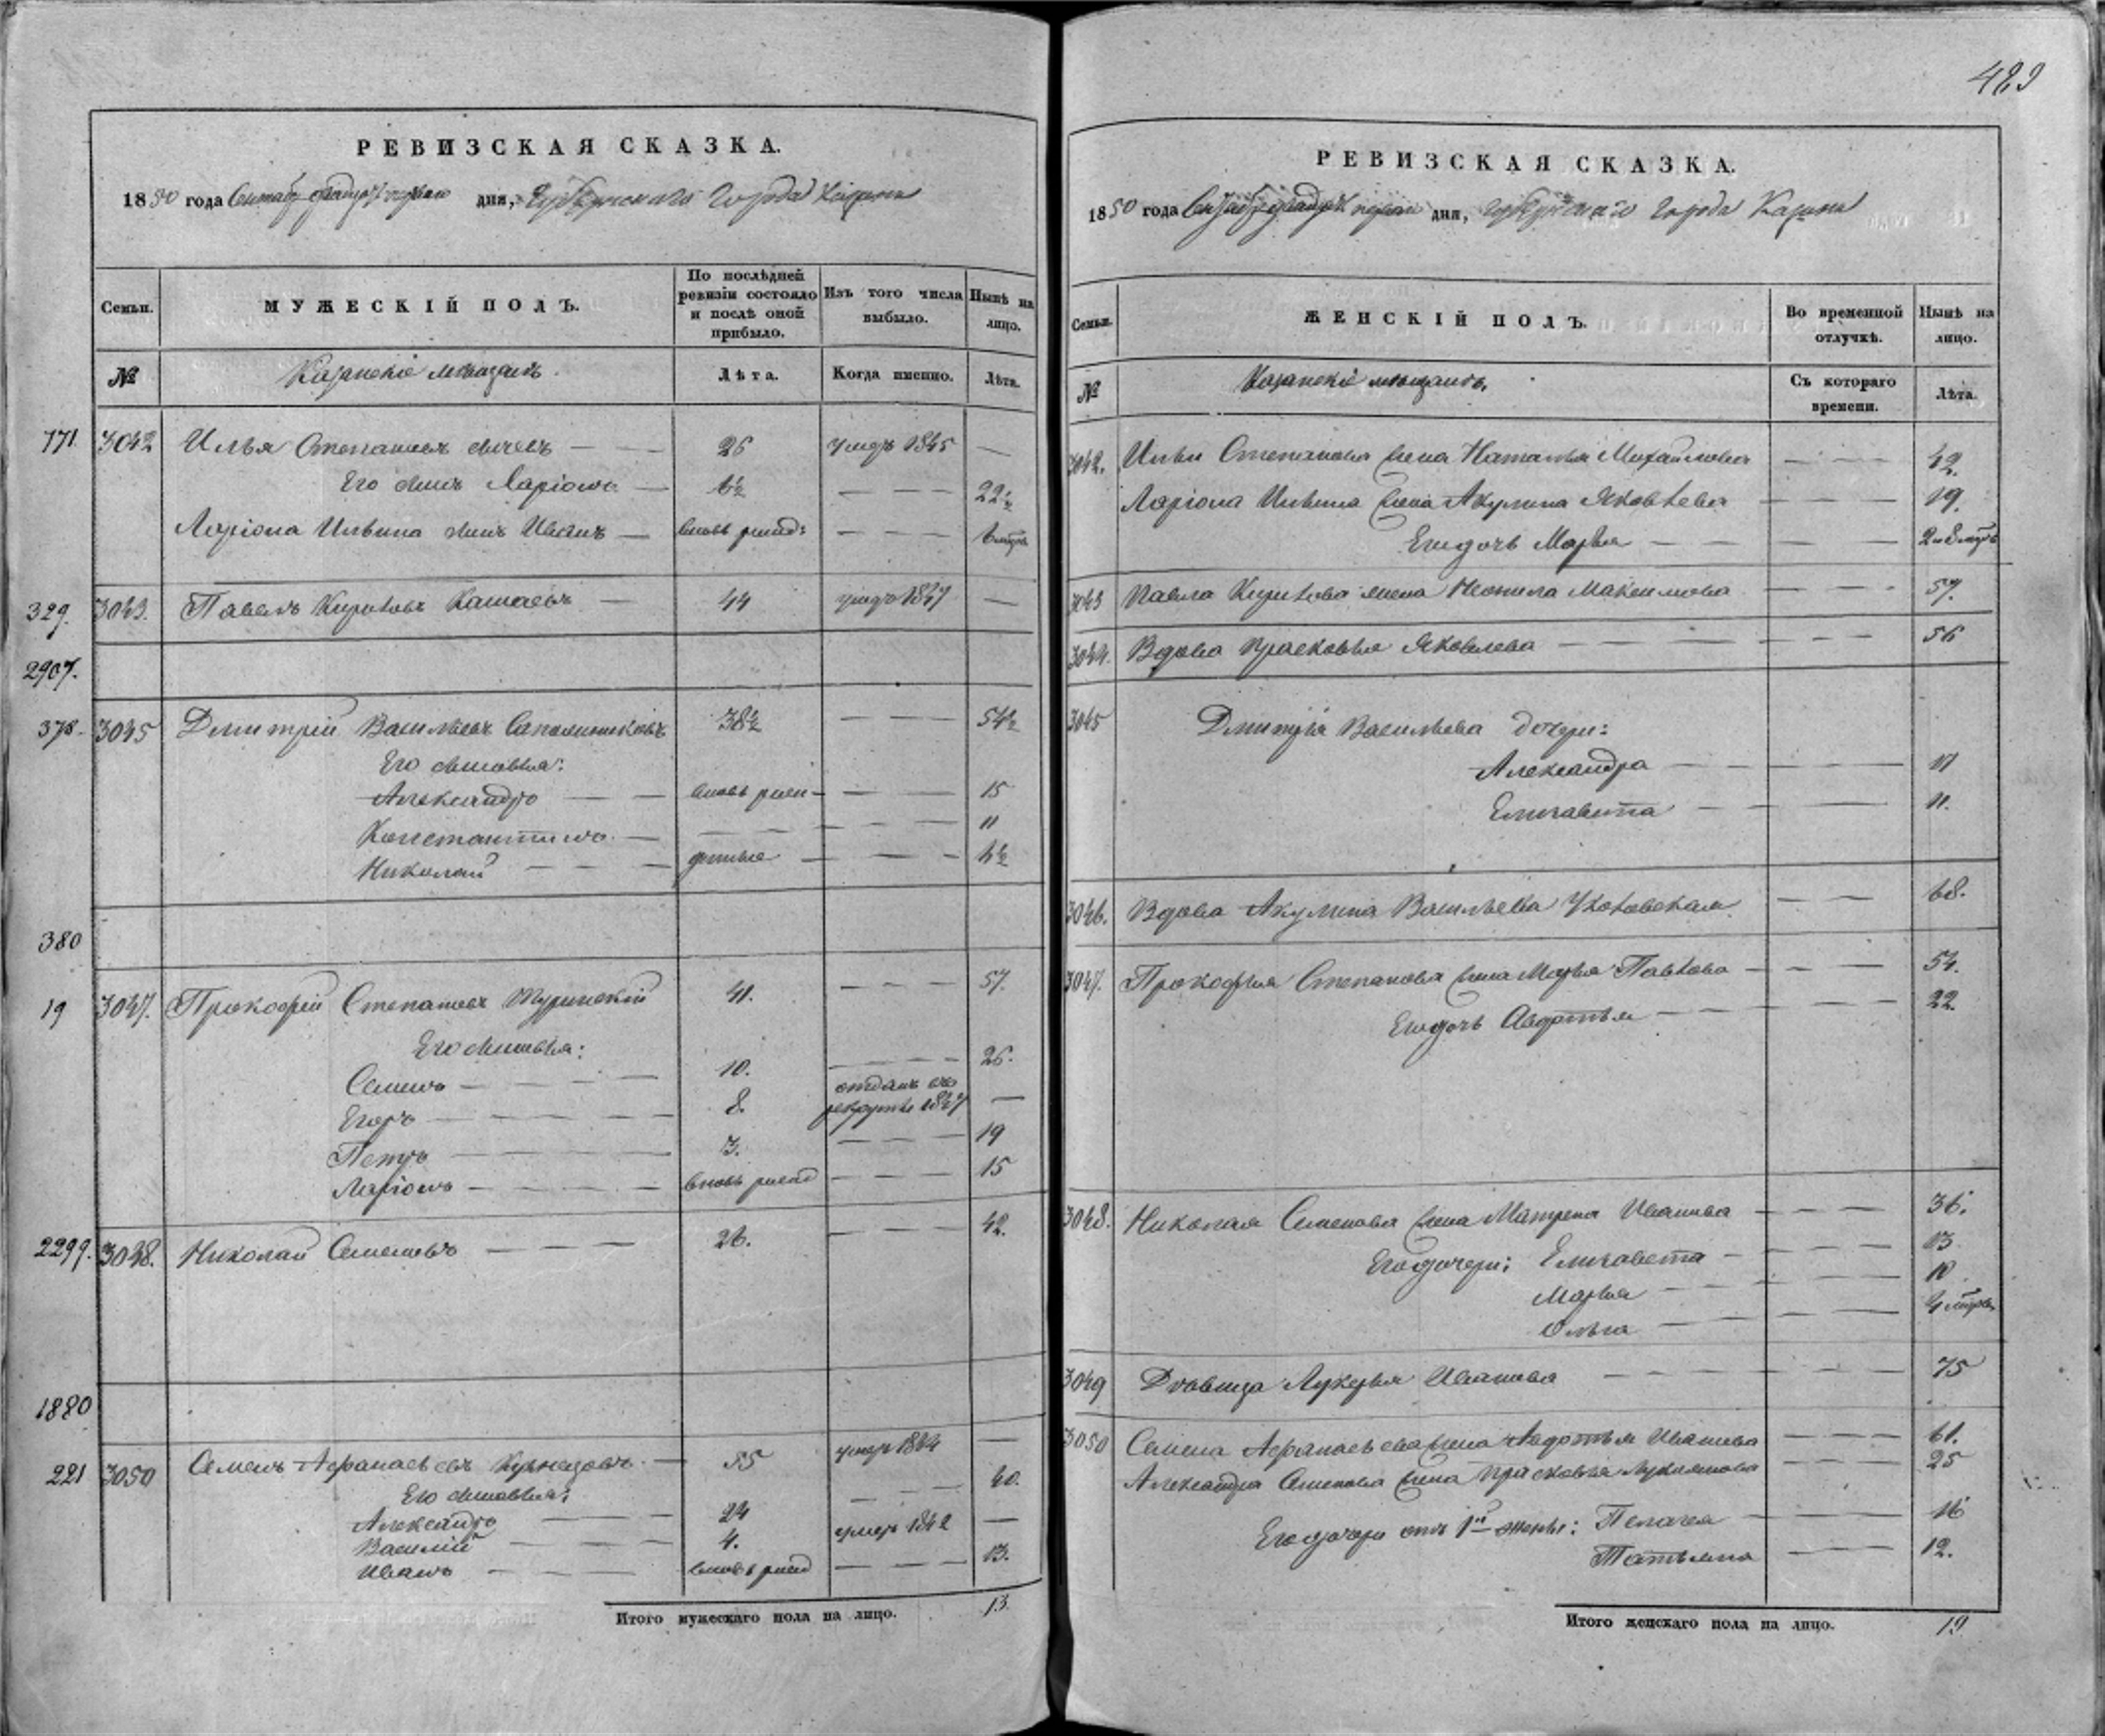 РЕВИЗСКАЯ СКАЗКА.
1850 года Сентября двадцать перваго дня, Губернскаго города Казани
Семьи.
МУЖЕСКІЙ ПОЛЪ.
По послѣдней ревизіи состояло и послѣ оной прибыло.
Изъ того числа выбыло.
Нынѣ на лицо.
№
Казанскіе мѣщане
Лѣта.
Когда именно.
Лѣта.
771 3042 Илья Степановъ 26 умеръ 1845 —
Его сынъ Ларіонъ — 6½ — — — 22½
Ларіона Ильина сынъ Иванъ — вновь рожд: — — —
329. 3043. Павелъ Кириловъ — 44 умеръ 1847 —
2907.
378 3045 Дмитрій Васильевъ Сапожниковъ 38½ — — — 54½
Его сыновья:
Александръ — — вновь рожд — — — 15
Константинъ — — — — — — 11
Николай — — — — — — 4½
380
19 3047. Прокофій Степановъ Туринскій 41. — — — 57.
Его сыновья:
Семенъ — — — 10. — — — 26.
Егоръ — — — 8. отданъ въ рекруты 1847 —
Петръ — — — 3. — — — 19
Ларіонъ — — — вновь рожд — — — 15
2299. 3048. Николай Семеновъ — — — 26. — — — 42.
1880
221 3050 Семенъ Афанасьевъ Кузнецовъ — 55 умеръ 1844 —
Его сыновья:
Александръ — — 24 — — — 40.
Василій — — — 4. умеръ 1842 —
Иванъ — — — вновь рожд — — — 13.
Итого мужескаго пола на лицо. 13.
489
РЕВИЗСКАЯ СКАЗКА.
1850 года Сентября двадцать перваго дня, Губернскаго города Казани
Семьи.
ЖЕНСКІЙ ПОЛЪ.
Во временной отлучкѣ.
Нынѣ на лицо.
№
Казанскіе мѣщане.
Съ котораго времени.
Лѣта.
3042. Ильи Степанова жена Наталья Михайлова — — — 42.
Ларіона Ильина жена Акулина Яковлева — — — 19.
Его дочь Марья — — —
3043 Павла Кирилова жена Неонила Максимова — — — 57.
3044. Вдова Прасковья Яковлева — — — 56
3045 Дмитрія Васильева дочери:
Александра — — — 17
Елизавета — — — 11.
3046. Вдова Акулина Васильева — — — 68.
3047. Прокофья Степанова жена Марья Павлова — — — 54.
Его дочь Авдотья — — — 22.
3048. Николая Семенова жена Матрена Иванова — — — 36.
Его дочери: Елизавета — — — 13
Марья — — — 10.
Ольга — — —
3049 Дѣвица Лукерья Иванова — — — 75
3050 Семена Афанасьева жена Авдотья Иванова — — — 61.
Александра Семенова жена Прасковья — — — 25
Его дочери отъ 1й жены: Пелагея — — — 16
Татьяна — — — 12.
Итого женскаго пола на лицо. 19